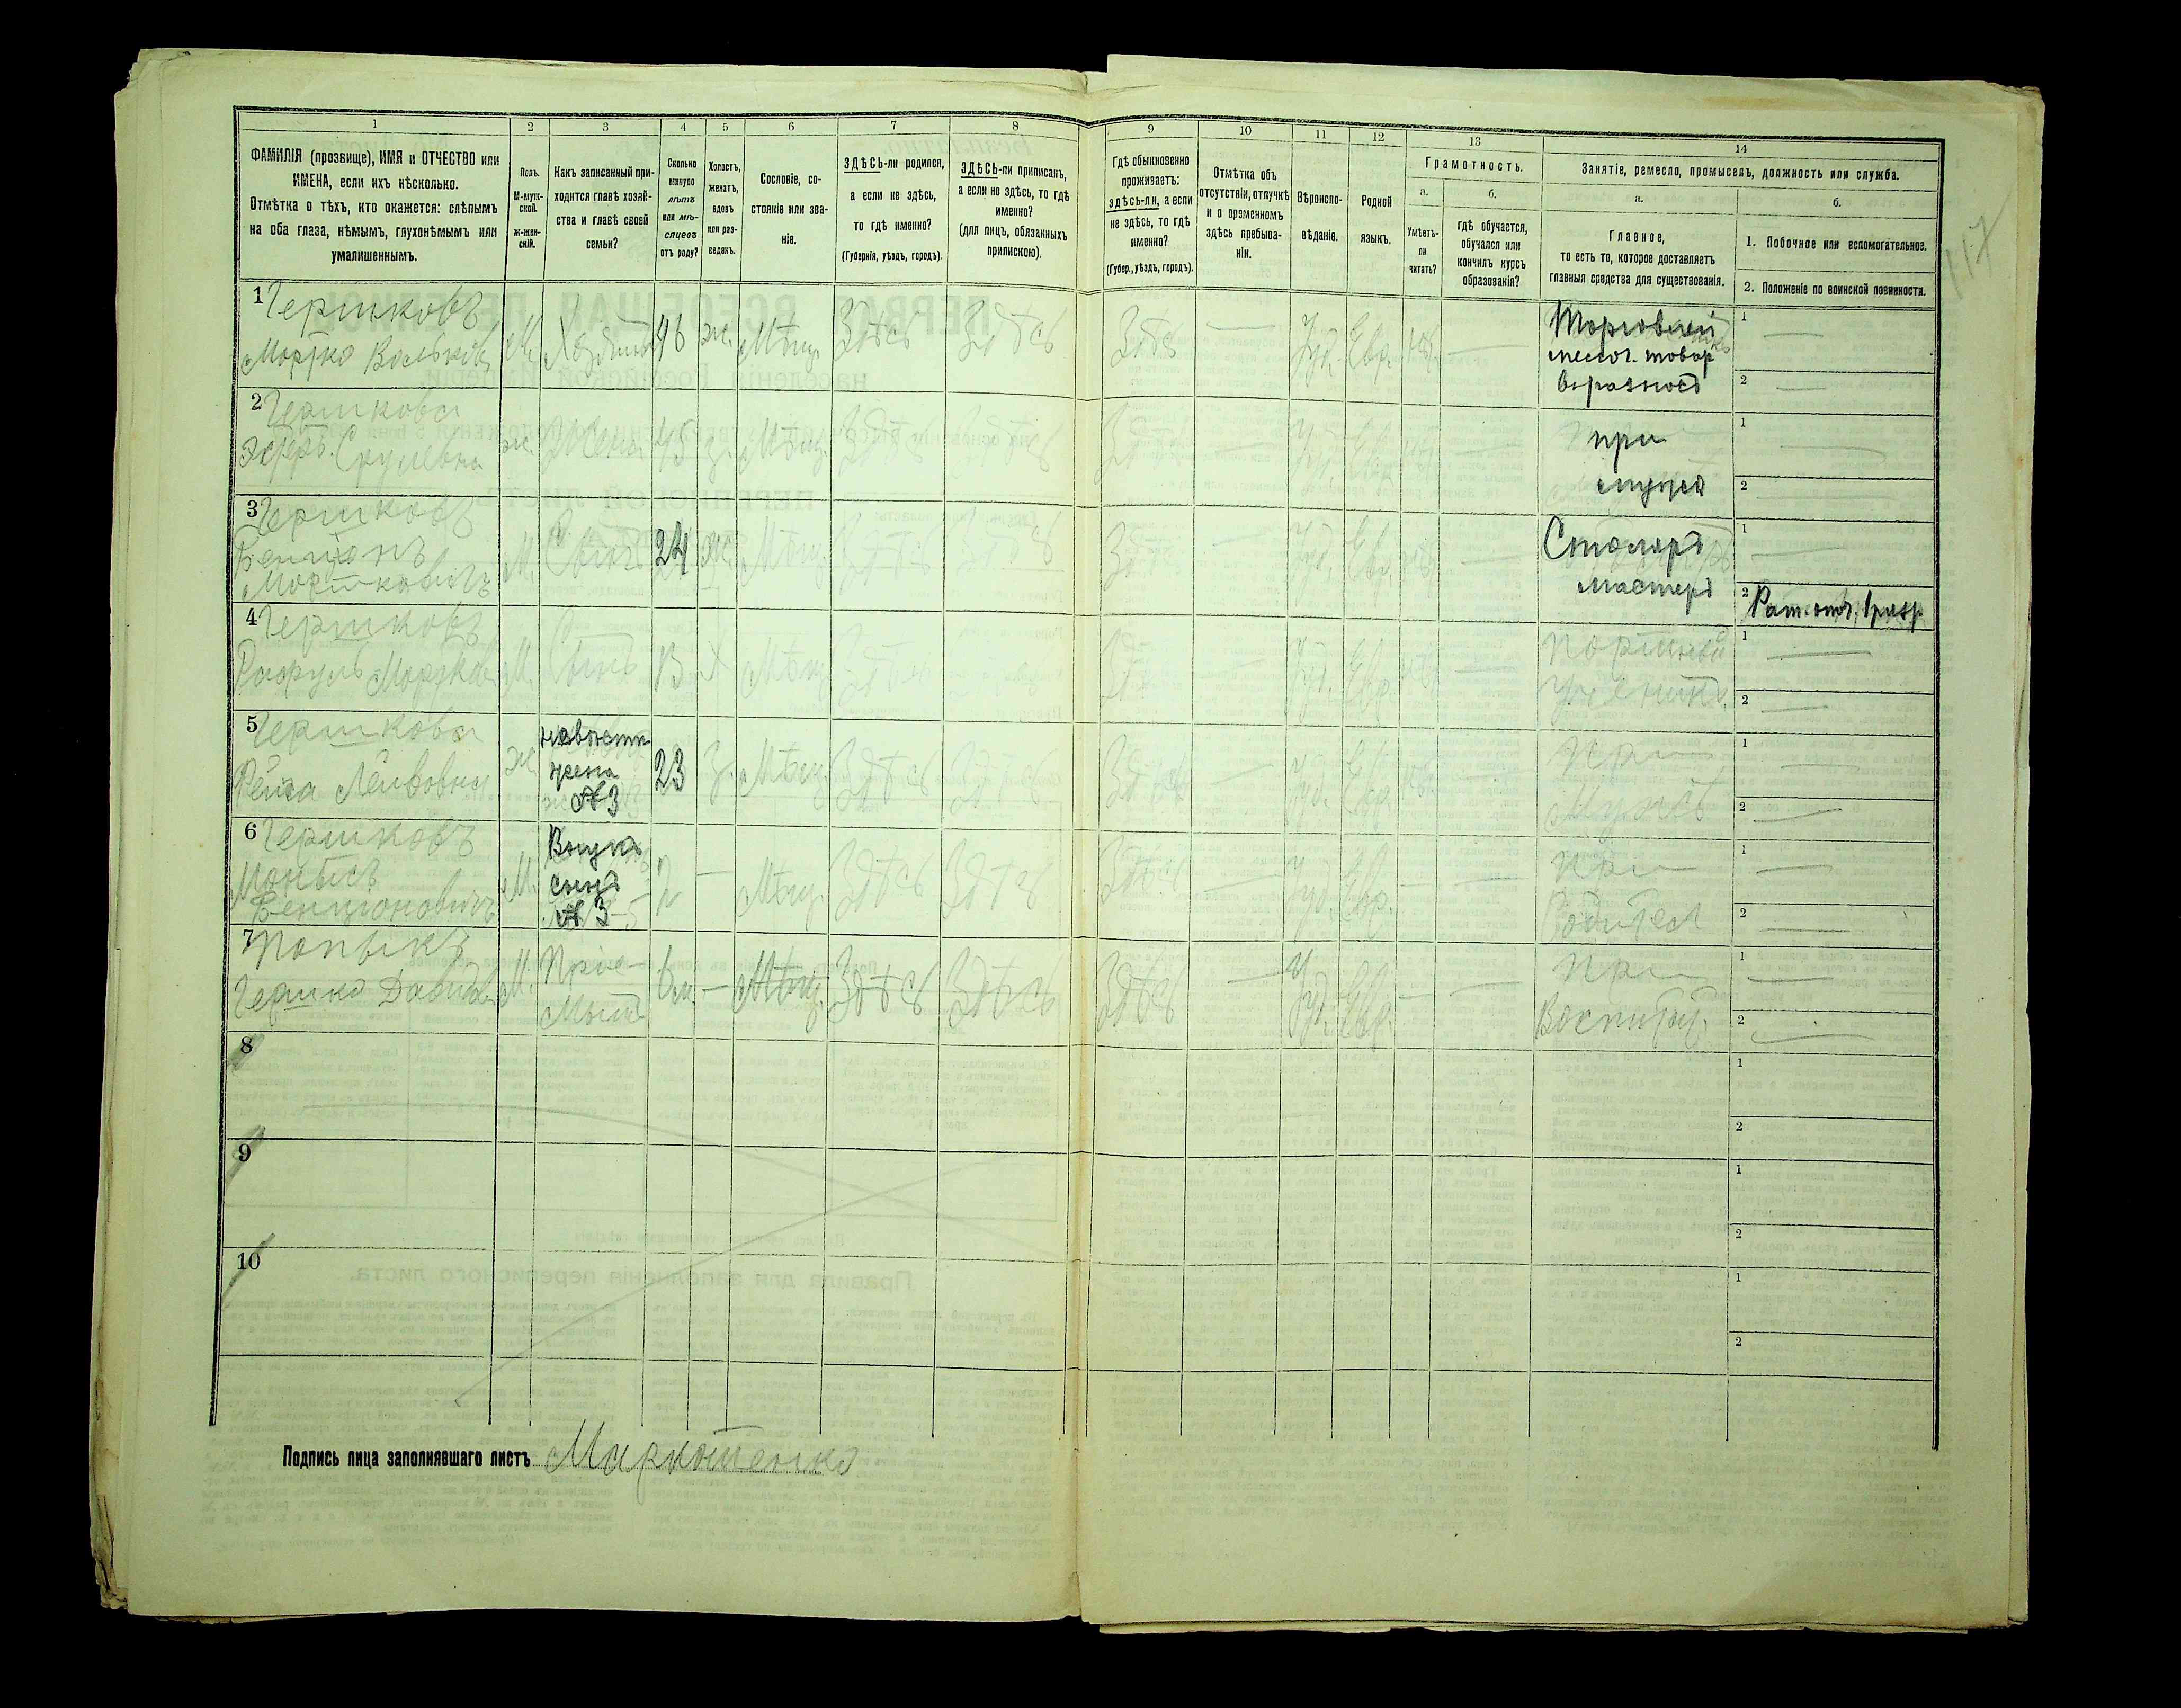 1 2 3 4 5 6 7 8 9 10 11 12 13 14
ФАМИЛІЯ (прозвище), ИМЯ и ОТЧЕСТВО или
ИМЕНА, если ихъ нѣсколько.
Отмѣтка о тѣхъ, кто окажется: слѣпымъ
на оба глаза, нѣмымъ, глухонѣмымъ или
умалишеннымъ.
Полъ.
М-муж-
ской.
ж-жен-
скій.
Какъ записанный при-
ходится главѣ хозяй-
ства и главѣ своей
семьи?
Сколько
минуло
лѣтъ
или мѣ-
сяцевъ
отъ роду?
Холостъ,
женатъ,
вдовъ
или раз-
веденъ.
Сословіе, со-
стояніе или зва-
ніе.
ЗДѢСЬ-ли родился,
а если не здѣсь,
то гдѣ именно?
(Губернія, уѣздъ, городъ).
ЗДѢСЬ-ли приписанъ,
а если не здѣсь, то гдѣ
именно?
(для лицъ, обязанныхъ
припискою).
Гдѣ обыкновенно
проживаетъ:
здѣсь-ли, а если
не здѣсь, то гдѣ
именно?
(Губер., уѣздъ, городъ).
Отмѣтка объ
отсутствіи, отлучкѣ
и о временномъ
здѣсь пребыва-
ніи.
Вѣроиспо-
вѣданіе.
Родной
языкъ.
Грамотность.
а.
Умѣетъ-
ли
читать?
б.
гдѣ обучается,
обучался или
кончилъ курсъ
образованія?
Занятіе, ремесло, промыселъ, должность или служба.
а.
Главное,
то есть то, которое доставляетъ
главныя средства для существованія.
б.
1. Побочное или вспомогательное.
2. Положеніе по воинской повинности.
117
1 Гершковъ
Мортко М. 46 ж. Мѣщ. Здѣсь Здѣсь Здѣсь — Іуд. Евр. — 1 —
товар 2 —
2 Гершкова
Эсферь Срулевна ж. Жена 45 з. Мѣщ. Здѣсь Здѣсь Здѣсь — Іуд. Евр. — при 1 —
мужѣ 2 —
3 Гершковъ
Бенціонъ
Мортковичъ М. Сынъ 24 ж. Мѣщ. Здѣсь Здѣсь Здѣсь — Іуд. Евр. — Столяръ 1 —
мастеръ 2 Рат. опол. 1 разр.
4 Гершковъ
М. Сынъ 13 Х Мѣщ. Здѣсь Здѣсь — Іуд. Евр. — Портной 1 —
Ученикъ. 2 —
5 Гершкова
Лейбовна ж. невѣст
жена
№ 3 23 з. Мѣщ. Здѣсь Здѣсь Здѣсь — Іуд. Евр. — При 1 —
Мужѣ 2 —
6 Гершковъ
Бенціоновичъ М. Внукъ
сынъ
№ 3-5 2 — Мѣщ. Здѣсь Здѣсь Здѣсь — Іуд. Евр. — — При 1 —
Родител 2 —
7
Гершко Давидов М. Прiе-
мышъ 6 м. — Мѣщ. Здѣсь Здѣсь Здѣсь — Іуд. Евр. — — При 1 —
Воспитат. 2 —
8 1
2
9 1
2
10 1
2
Подпись лица заполнявшаго листъ